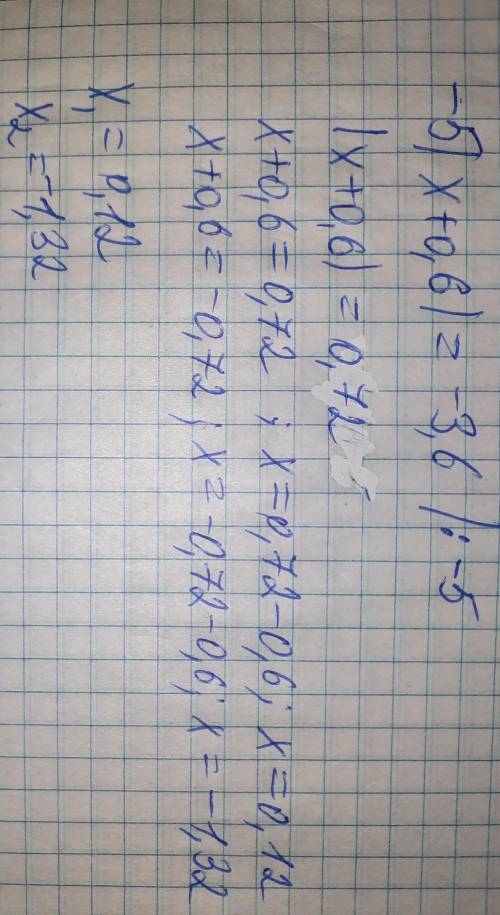 -5|x+0,6|=-3,6 /:-5
|x+0,6|=0,72
x+0,6=0,72 ; x=0,72-0,6; x=0,12
x+0,6=-0,72 ; x=-0,72-0,6; x=-1,32
x₁=0,12
x₂=-1,32